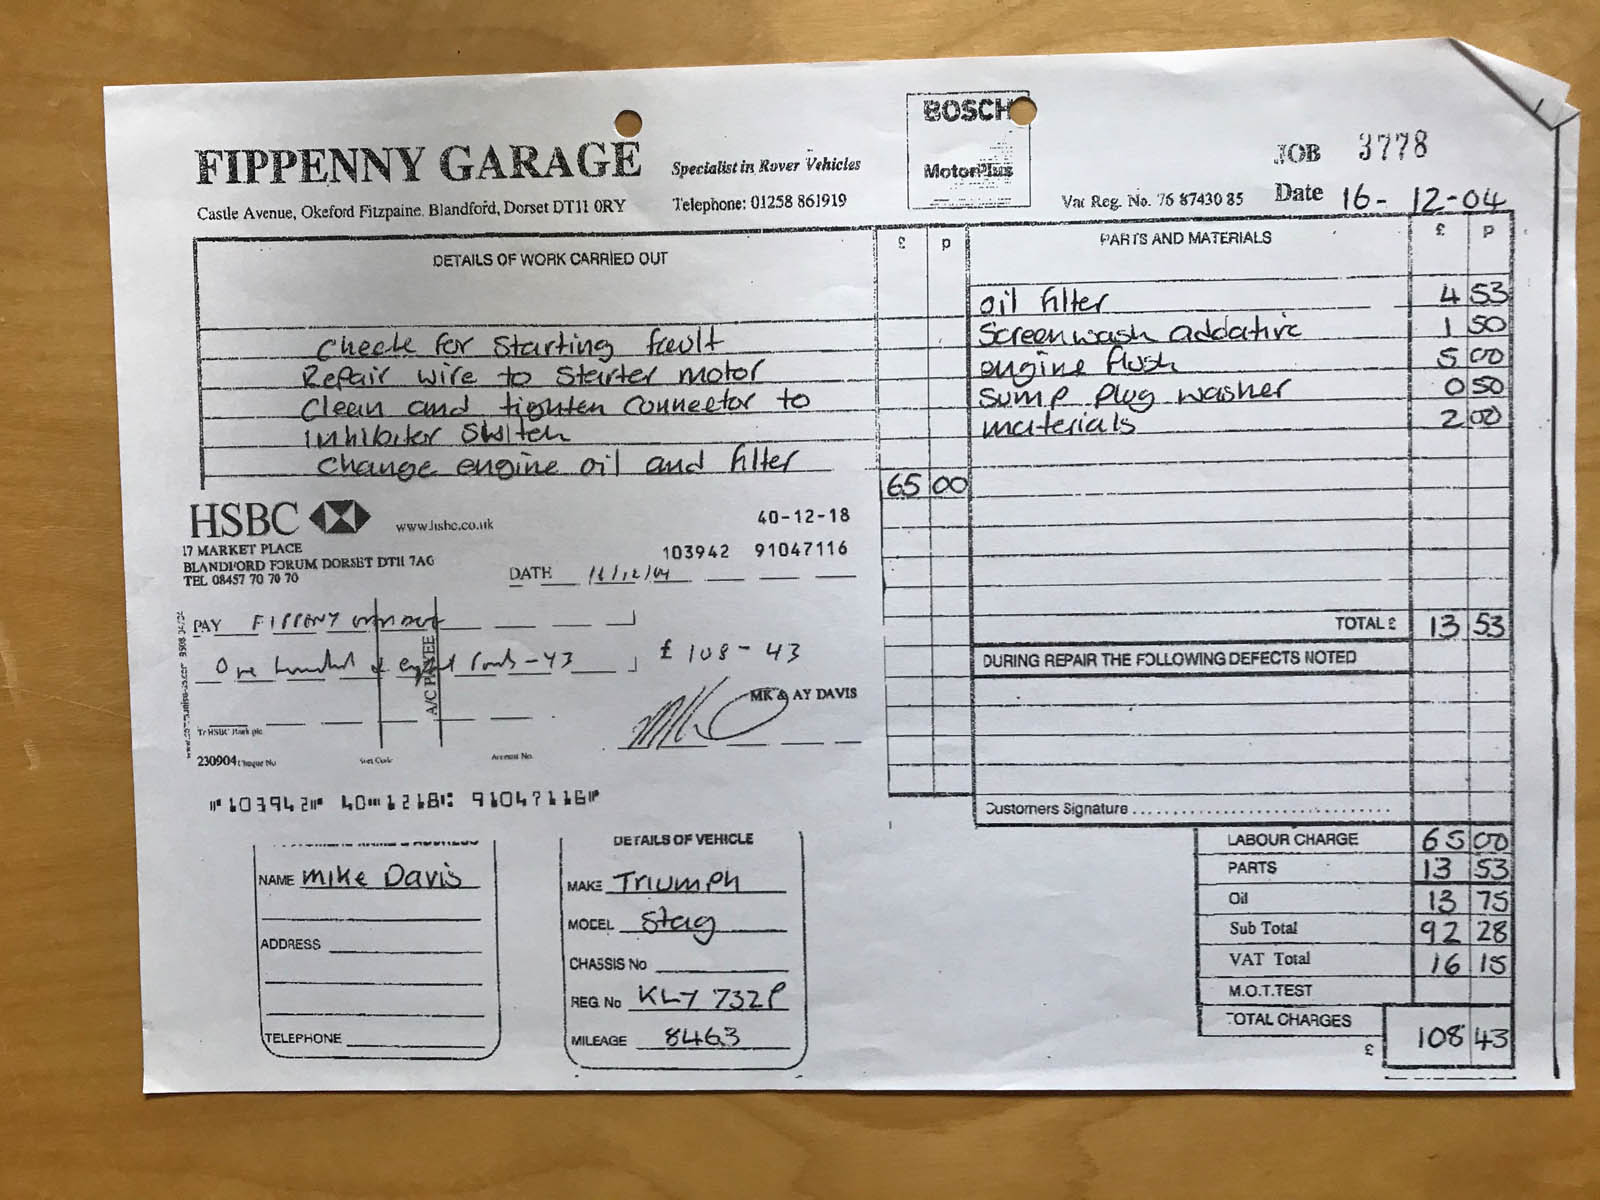 FIPPENNY GARAGE
Specialist in Rover Vehicles
Castle Avenue, Okeford Fitzpaine, Blandford, Dorset DT11 0RY
Telephone: 01258 861919
BOSCH
MotorPlus
Vat Reg. No. 76 87430 85
JOB 3778
Date 16-12-04
DETAILS OF WORK CARRIED OUT £ p
Check for starting fault
Repair wire to starter motor
Clean and tighten connector to
inhibitor switch
change engine oil and filter
65 00
PARTS AND MATERIALS £ p
oil filter 4 53
Screenwash addative 1 50
engine flush 5 00
sump plug washer 0 50
materials 2 00
TOTAL £ 13 53
DURING REPAIR THE FOLLOWING DEFECTS NOTED
Customers Signature
HSBC www.hsbc.co.uk
17 MARKET PLACE
BLANDFORD FORUM DORSET DT11 7AG
TEL 08457 70 70 70
40-12-18
103942 91047116
DATE 16/12/04
PAY
One hundred & eight Pounds - 43
£ 108 - 43
A/C PAYEE
MK & AY DAVIS
230904 Cheque No Sort Code Account No.
103942 40 1218 91047116
NAME Mike Davis
ADDRESS
TELEPHONE
DETAILS OF VEHICLE
MAKE Triumph
MODEL Stag
CHASSIS No
REG. No KLY 732P
MILEAGE 8463
LABOUR CHARGE 65 00
PARTS 13 53
Oil 13 75
Sub Total 92 28
VAT Total 16 15
M.O.T.TEST
TOTAL CHARGES
£ 108 43